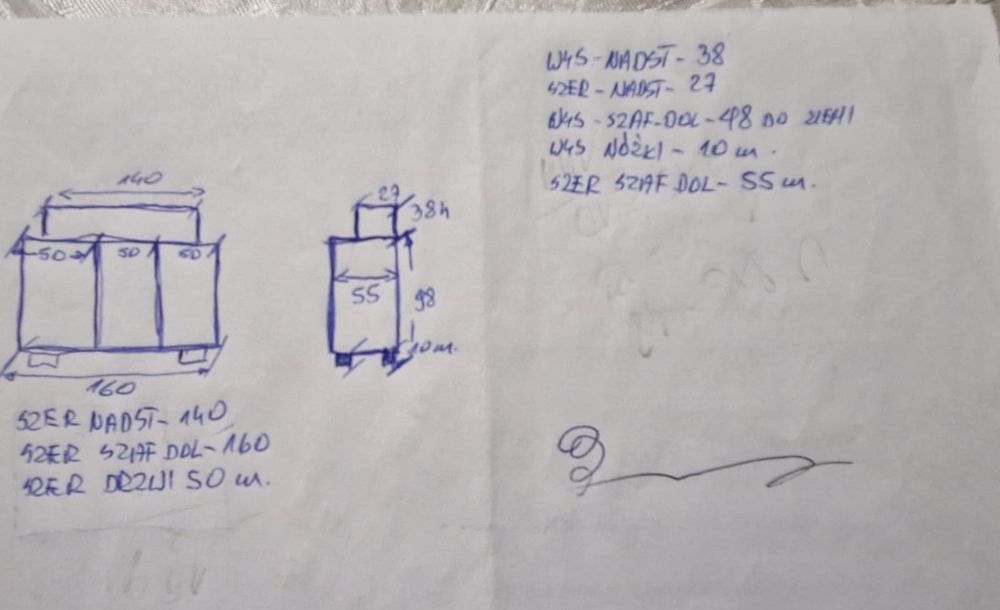 WYS-NADST-38
SZER-NADST-27
WYS-SZAF-DOL-98 DO ZIEMI
WYS NÓŻKI-10 m.
SZER SZAF DOL-55 m.
140
50 50 50
160
27
38h
55
98
10 m.
SZER NADST-140
SZER SZAF DOL-160
SZER DRZWI 50 m.